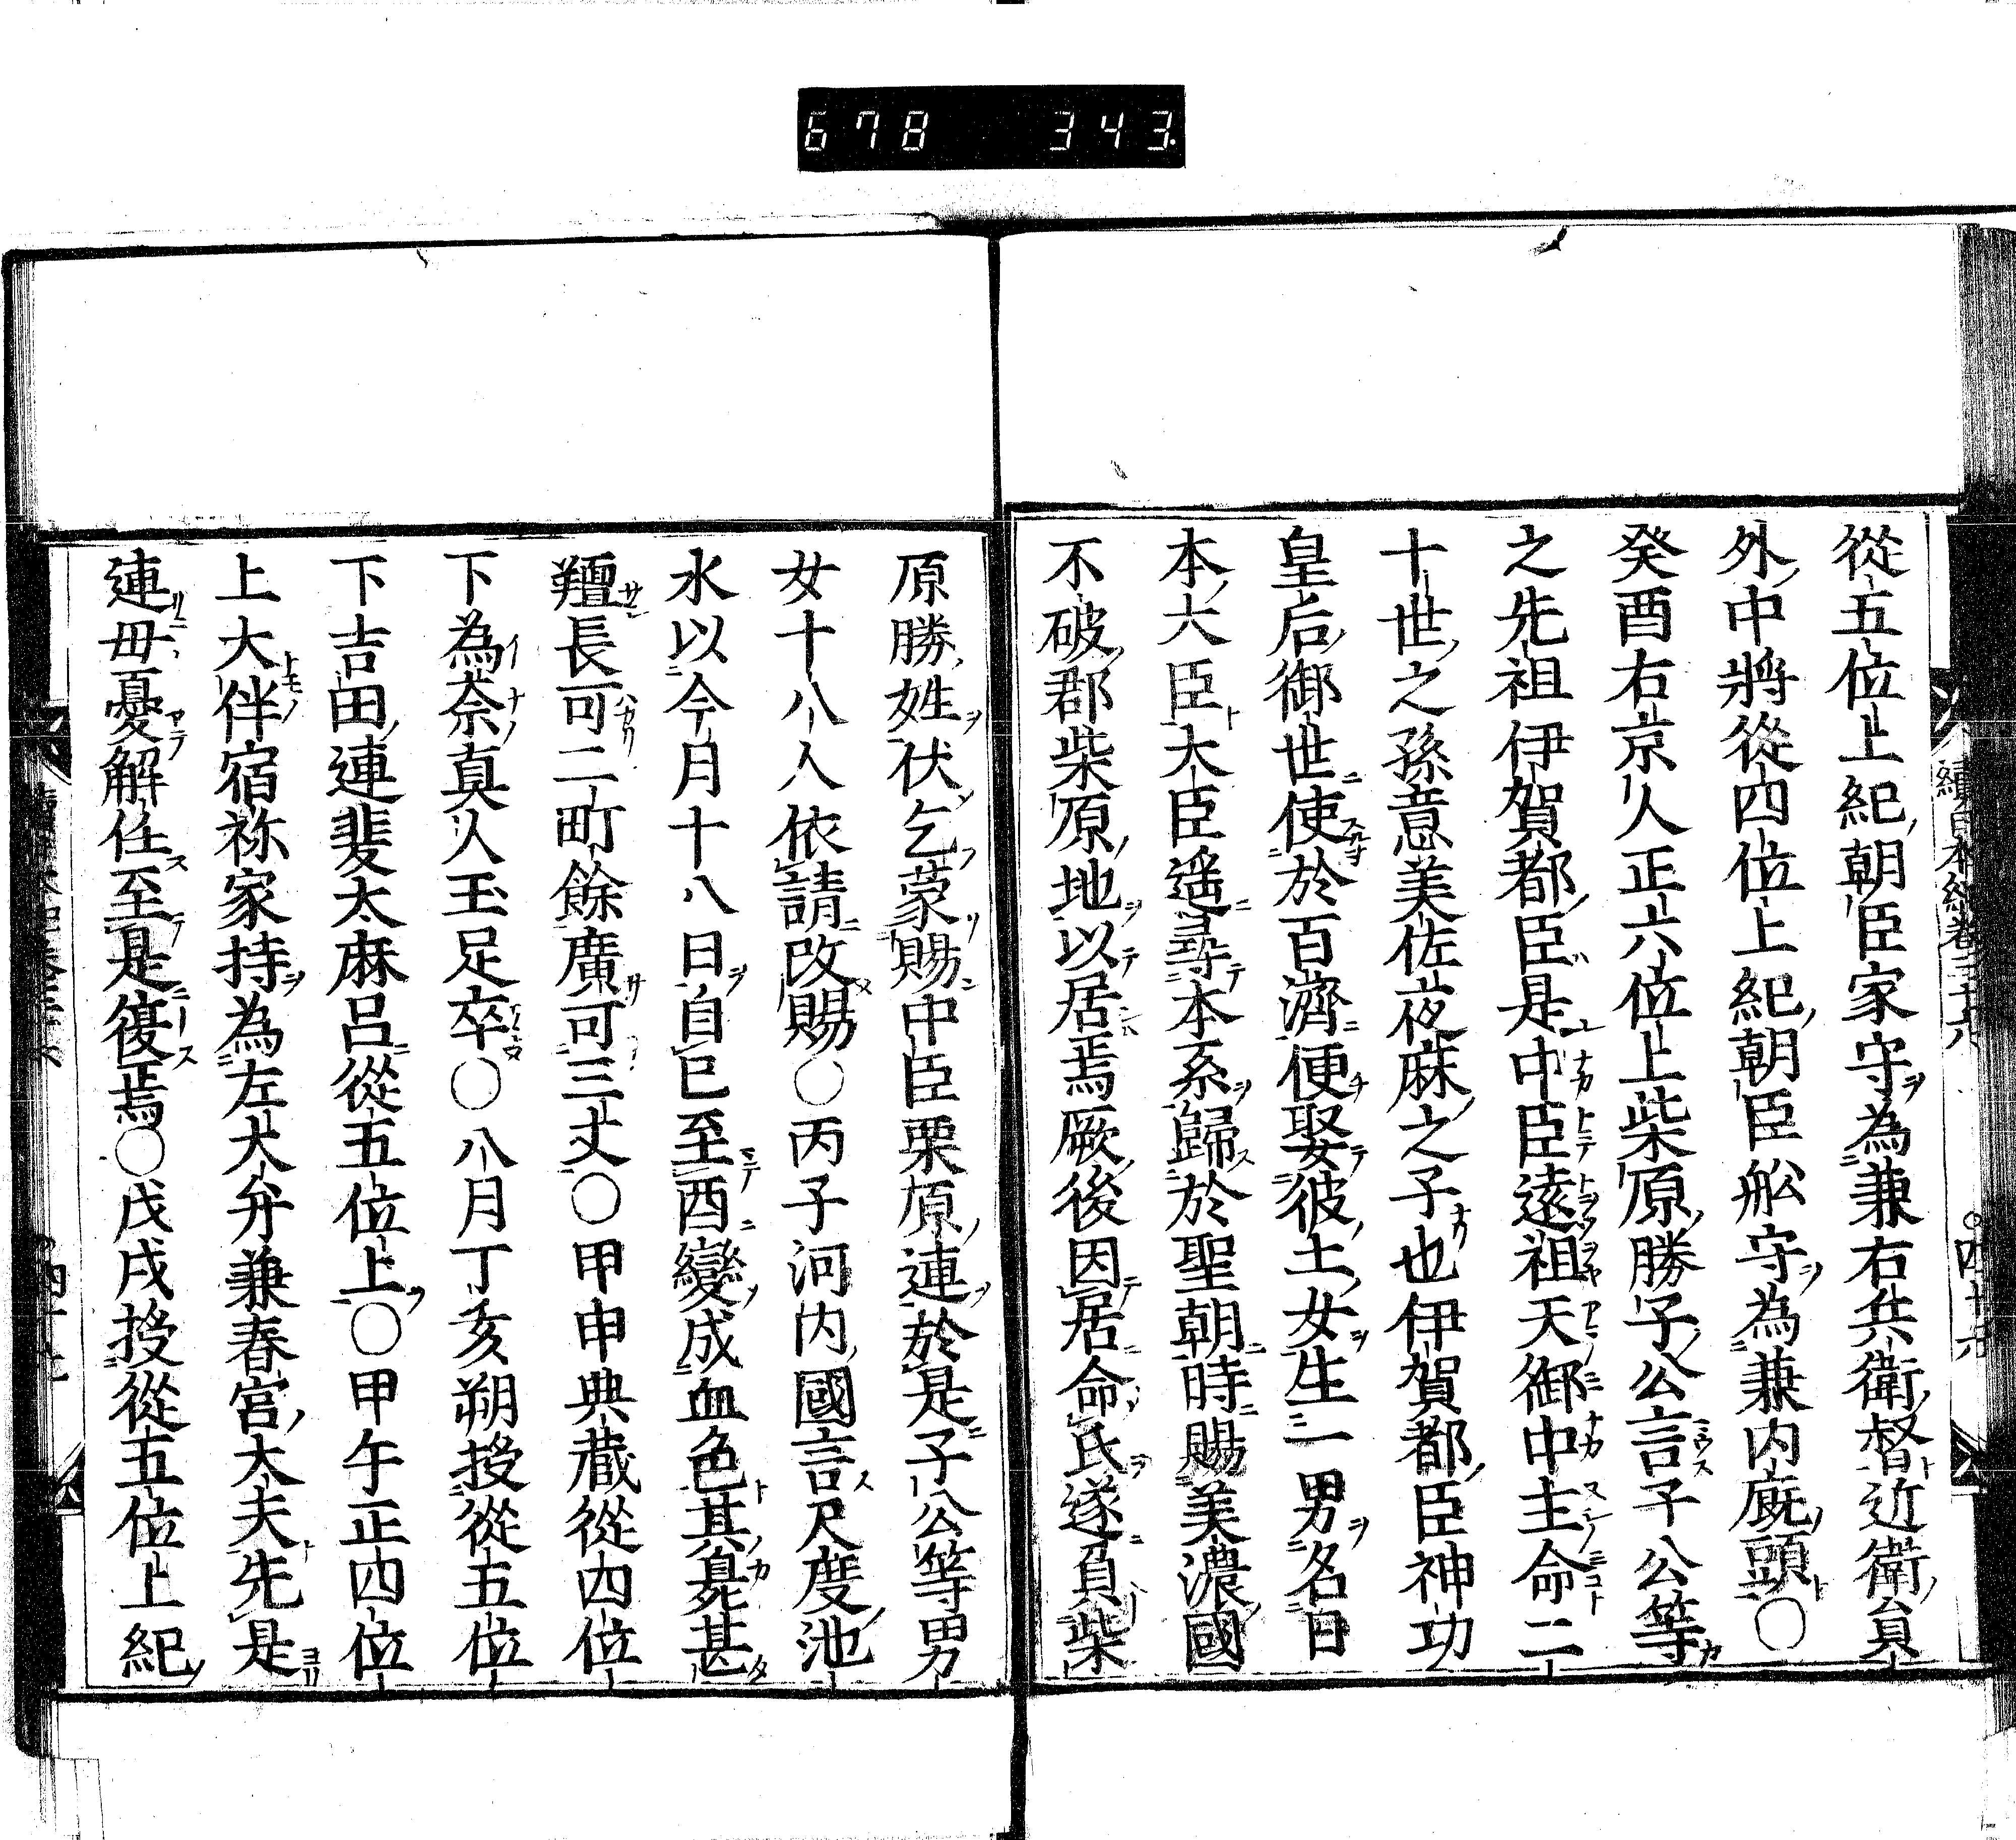 678 343
續日本紀卷三十六 ○四十六
從五位上紀朝臣家守為兼右兵衛督近衛員
外中將從四位上紀朝臣舩守為兼内廐頭○
癸酉右京人正六位上柴原勝子公言子公等
之先祖伊賀都臣是中臣遠祖天御中主命二
十世之孫意美佐夜麻之子也伊賀都臣神功
皇后御世使於百濟便娶彼土女生二男名曰
本大臣大臣遥尋本系歸於聖朝時賜美濃國
不破郡柴原地以居焉厥後因居命氏遂負柴
原勝姓伏乞蒙賜中臣栗原連於是子公等男
女十八人依請改賜○丙子河内國言尺度池
水以今月十八日自巳至酉變成血色其臰甚
羶長可二町餘廣可三丈○甲申典藏從四位
下為奈真人玉足卒○八月丁亥朔授從五位
下吉田連斐太麻呂從五位上○甲午正四位
上大伴宿祢家持為左大弁兼春宮大夫先是
連毋憂解任至是復焉○戊戌授從五位上紀